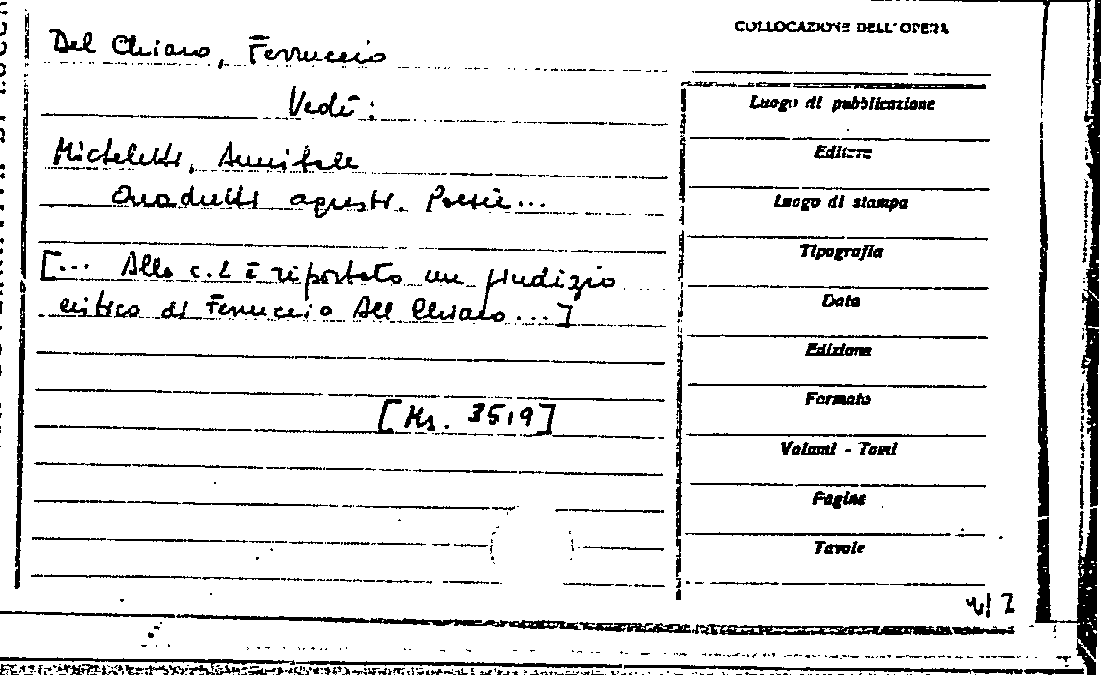 Del Chiaro, Ferruccio
Vedi:
Micheletti, Annibale
Quadretti agresti. Poesie...
[... Alla c. 2 è riportato un giudizio
critico di Ferruccio Del Chiaro...]
[Ms. 3519]
COLLOCAZIONE DELL'OPERA
Luogo di pubblicazione
Editore
Luogo di stampa
Tipografia
Data
Edizione
Formato
Volumi - Tomi
Pagine
Tavole